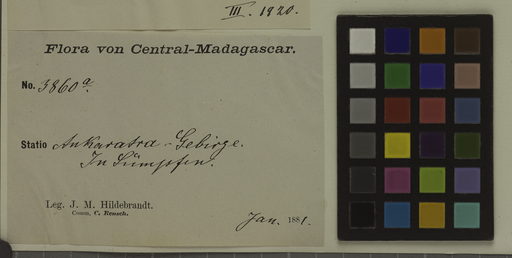 III. 1920.
Flora von Central-Madagascar.
No. 3860a.
Statio Ankaratra-Gebirge.
In Sümpfen.
Leg. J. M. Hildebrandt.
Comm. C. Rensch.
Jan. 1881.